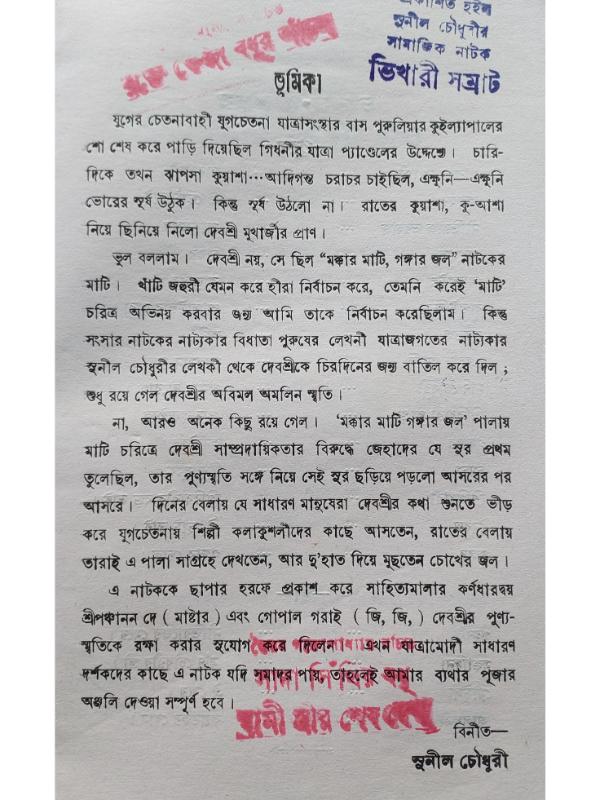 প্রকাশিত হইল
সুনীল চৌধুরীর
সামাজিক নাটক
ভিখারী সম্রাট
ভূমিকা
যুগের চেতনাবাহী যুগচেতনা যাত্রাসংস্থার বাস পুরুলিয়ার কুইল্যাপালের
শো শেষ করে পাড়ি দিয়েছিল গিধনীর যাত্রা প্যাণ্ডেলের উদ্দেশ্যে। চারি-
দিকে তখন ঝাপসা কুয়াশা···আদিগন্ত চরাচর চাইছিল, এক্ষুনি—এক্ষুনি
ভোরের সূর্য উঠুক। কিন্তু সূর্য উঠলো না। রাতের কুয়াশা, কু-আশা
নিয়ে ছিনিয়ে নিলো দেবশ্রী মুখার্জীর প্রাণ।
ভুল বললাম। দেবশ্রী নয়, সে ছিল “মক্কার মাটি, গঙ্গার জল” নাটকের
মাটি। খাঁটি জহুরী যেমন করে হীরা নির্বাচন করে, তেমনি করেই ‘মাটি’
চরিত্র অভিনয় করবার জন্য আমি তাকে নির্বাচন করেছিলাম। কিন্তু
সংসার নাটকের নাট্যকার বিধাতা পুরুষের লেখনী যাত্রাজগতের নাট্যকার
সুনীল চৌধুরীর লেখকী থেকে দেবশ্রীকে চিরদিনের জন্য বাতিল করে দিল;
শুধু রয়ে গেল দেবশ্রীর অবিমল অমলিন স্মৃতি।
না, আরও অনেক কিছু রয়ে গেল। ‘মক্কার মাটি গঙ্গার জল’ পালায়
মাটি চরিত্রে দেবশ্রী সাম্প্রদায়িকতার বিরুদ্ধে জেহাদের যে সুর প্রথম
তুলেছিল, তার পুণ্যস্মৃতি সঙ্গে নিয়ে সেই সুর ছড়িয়ে পড়লো আসরের পর
আসরে। দিনের বেলায় যে সাধারণ মানুষেরা দেবশ্রীর কথা শুনতে ভীড়
করে যুগচেতনায় শিল্পী কলাকুশলীদের কাছে আসতেন, রাতের বেলায়
তারাই এ পালা সাগ্রহে দেখতেন, আর দু’হাত দিয়ে মুছতেন চোখের জল।
এ নাটককে ছাপার হরফে প্রকাশ করে সাহিত্যমালার কর্ণধারদ্বয়
শ্রীপঞ্চানন দে (মাষ্টার) এবং গোপাল গরাই (জি, জি,) দেবশ্রীর পুণ্য-
স্মৃতিকে রক্ষা করার সুযোগ করে দিলেন। এখন যাত্রামোদী সাধারণ
দর্শকদের কাছে এ নাটক যদি সমাদর পায়, তাহলেই আমার ব্যথার পূজার
অঞ্জলি দেওয়া সম্পূর্ণ হবে।
বিনীত—
সুনীল চৌধুরী